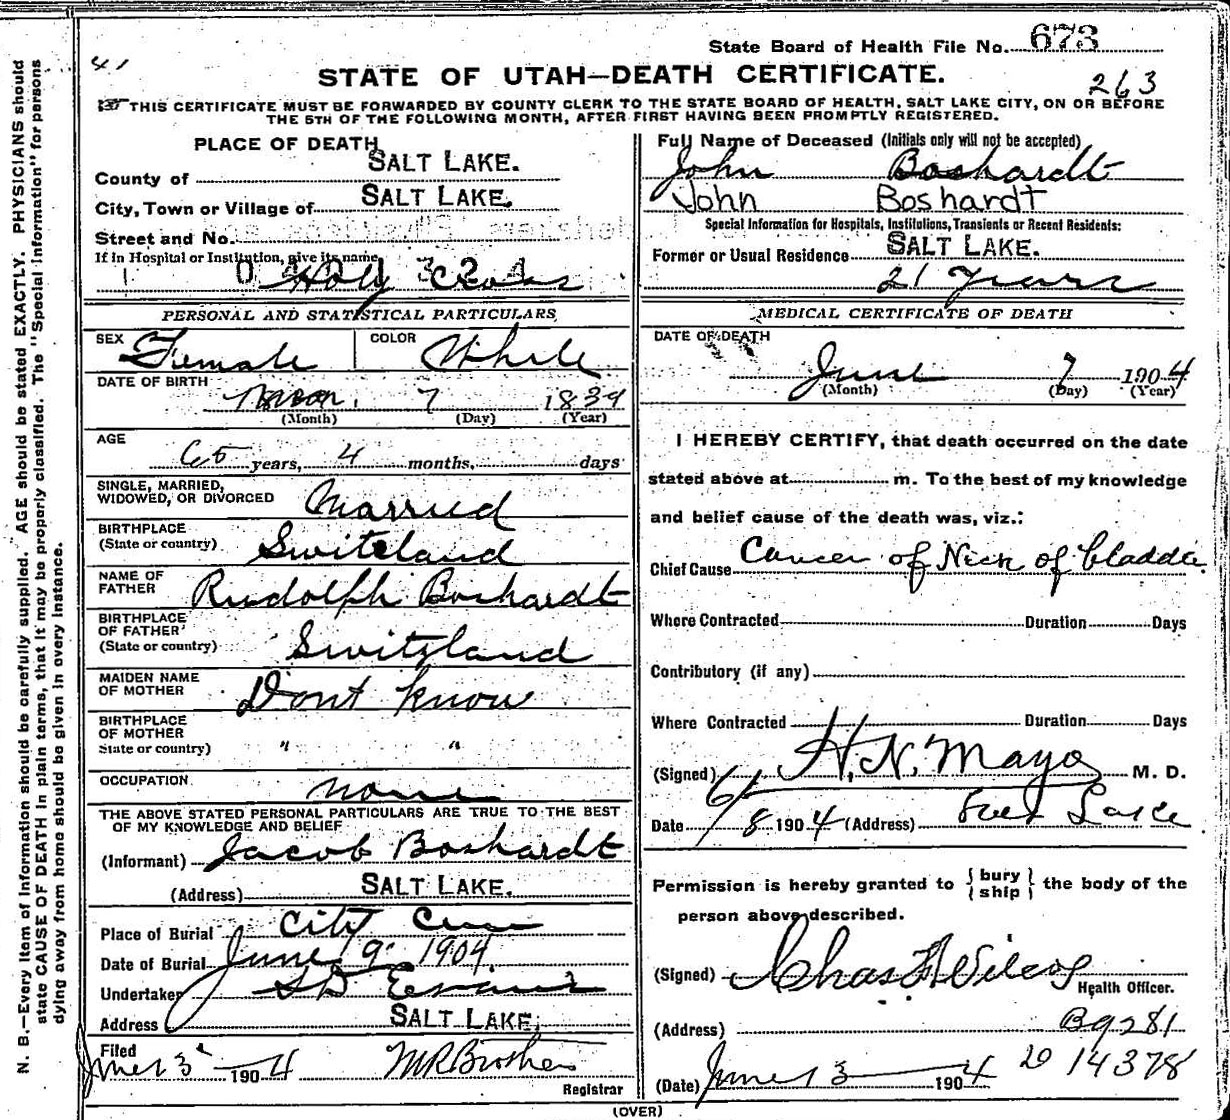 State Board of Health File No. 673
41
STATE OF UTAH—DEATH CERTIFICATE.
263
THIS CERTIFICATE MUST BE FORWARDED BY COUNTY CLERK TO THE STATE BOARD OF HEALTH, SALT LAKE CITY, ON OR BEFORE
THE 5TH OF THE FOLLOWING MONTH, AFTER FIRST HAVING BEEN PROMPTLY REGISTERED.
PLACE OF DEATH
County of SALT LAKE.
City, Town or Village of SALT LAKE.
Street and No.
If in Hospital or Institution, give its name
Holy Cross
PERSONAL AND STATISTICAL PARTICULARS
SEX Female COLOR White
DATE OF BIRTH
7 1839
(Month) (Day) (Year)
AGE
65 years, 4 months, days
SINGLE, MARRIED,
WIDOWED, OR DIVORCED Married
BIRTHPLACE
(State or country) Switzland
NAME OF
FATHER Rudolph Boshardt
BIRTHPLACE
OF FATHER
(State or country) Switzland
MAIDEN NAME
OF MOTHER Dont know
BIRTHPLACE
OF MOTHER
State or country) " "
OCCUPATION none
THE ABOVE STATED PERSONAL PARTICULARS ARE TRUE TO THE BEST
OF MY KNOWLEDGE AND BELIEF
(Informant) Jacob Boshardt
(Address) SALT LAKE.
Place of Burial City Cem
Date of Burial June 9 1904
Undertaker S D Evans
Address SALT LAKE.
Filed
June 13 1904 M R Brothers
Registrar
Full Name of Deceased (Initials only will not be accepted)
John Boshardt
John Boshardt
Special Information for Hospitals, Institutions, Transients or Recent Residents:
Former or Usual Residence SALT LAKE.
21 Years
MEDICAL CERTIFICATE OF DEATH
DATE OF DEATH
June 7 1904
(Month) (Day) (Year)
I HEREBY CERTIFY, that death occurred on the date
stated above at m. To the best of my knowledge
and belief cause of the death was, viz.:
Chief Cause Cancer of Neck of bladder
Where Contracted Duration Days
Contributory (if any)
Where Contracted Duration Days
(Signed) H. N. Mayo M. D.
Date 6/8 1904 (Address) Salt Lake
Permission is hereby granted to { bury
ship } the body of the
person above described.
(Signed) Chas F Wilcox
Health Officer.
(Address) B9281
20 14378
(Date) June 13 1904
(OVER)
N. B.—Every item of information should be carefully supplied. AGE should be stated EXACTLY. PHYSICIANS should
state CAUSE OF DEATH in plain terms, that it may be properly classified. The "Special Information" for persons
dying away from home should be given in every instance.